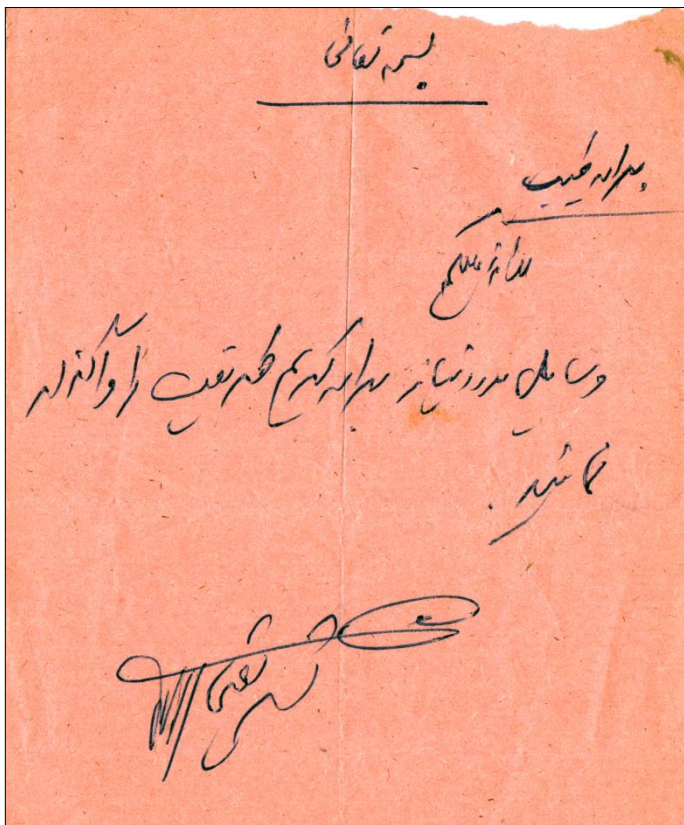 بسمه تعالی
برادر طیب
سلام علیکم
وسایل مورد نیاز برادر کریم طریقت را واگذار
نمائید.